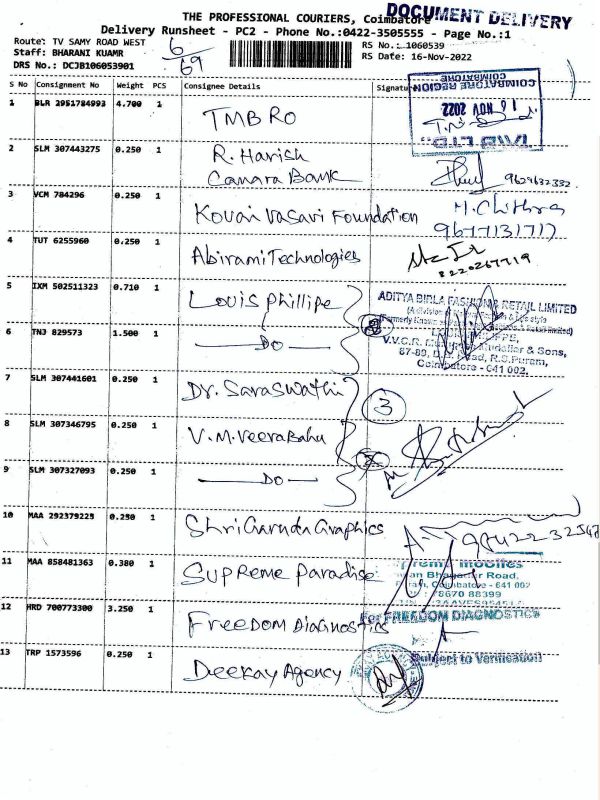 DOCUMENT DELIVERY
THE PROFESSIONAL COURIERS, Coimbatore
Delivery Runsheet - PC2 - Phone No.:0422-3505555 - Page No.:1
Route: TV SAMY ROAD WEST
Staff: BHARANI KUAMR
DRS No.: DCJB106053901
6/69
RS No.: 1060539
RS Date: 16-Nov-2022
S No Consignment No Weight PCS Consignee Details Signatu
COIMBATORE REGION
COIMBATORE
16 NOV 2022
1 BLR 2951784993 4.700 1 TMB RO
2 SLM 307443275 0.250 1 R. Harish
Canara Bank
9629632332
3 VCM 784296 0.250 1 Kovai Vasavi Foundation M. Chithra
9677131717
4 TUT 6255960 0.250 1 Abirami Technologies
8220267719
5 IXM 502511323 0.710 1 Louis Phillipe
ADITYA BIRLA FASHION & RETAIL LIMITED
6 TNJ 829573 1.500 1 DO
87-89, D.B. Road, R.S. Puram,
Coimbatore - 641 002.
7 SLM 307441601 0.250 1 Dr. Saraswathi
3
8 SLM 307346795 0.250 1 V.M. Veerabahu
9 SLM 307327093 0.250 1 DO
10 MAA 292379225 0.250 1 Shri Garuda Graphics
11 MAA 858481363 0.380 1 Supreme Paradise
Coimbatore - 641 002
78670 88399
12 HRD 700773300 3.250 1 Freedom Diagnostics
For FREEDOM DIAGNOSTICS
13 TRP 1573596 0.250 1 Deekay Agency
Subject to Verification